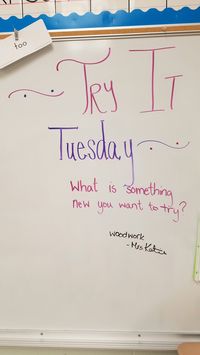 too
Try It
Tuesday
What is something
new you want to try?
woodwork